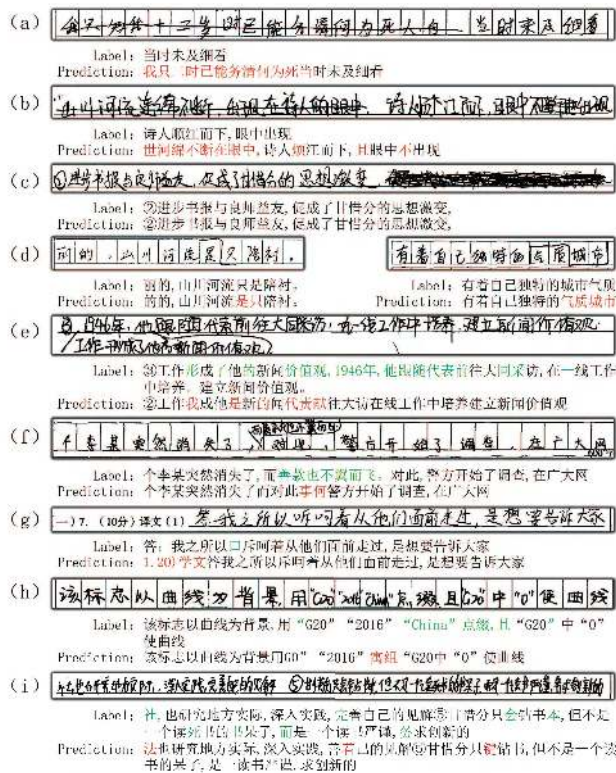 (a) 食只 时 十二岁时已能务清何为死人自 当时未及细看
Label: 当时未及细看
Prediction: 我只二时已能务清何为死当时未及细看
(b) 山川河流连绵不断,出现在诗人的眼中, 诗人顺江而下,眼中出现
Label: 诗人顺江而下,眼中出现
Prediction: 世河绵不断在眼中,诗人烦江而下,且眼中不出现
(c) ①进步书报与良师益友,促成了甘惜分的思想激变,
Label: ②进步书报与良师益友,促成了甘惜分的思想激变,
Prediction: ②进步书报与良师益友,促成了甘惜分的思想激变,
(d) 丽的,山川河流是只陪衬。 有着自己独特的气质城市
Label: 丽的,山川河流只是陪衬。 Label: 有着自己独特的城市气质
Prediction: 的的,山川河流是只陪衬。 Prediction: 有着自己独特的气质城市
(e) 1946年,他跟随代表前往大同采访,在一线工作中培养,建立新闻价值观
工作形成了他的新闻价值观
Label: ③工作形成了他的新闻价值观,1946年,他跟随代表前往大同采访,在一线工作
中培养。建立新闻价值观。
Prediction: ②工作我成他是新的闻代责献往大访在线工作中培养建立新闻价值观
(f) 而善款也不翼而飞
个李某突然消失了,对此,警方开始了调查,在广大网
600字
Label: 个李某突然消失了,而善款也不翼而飞。对此,警方开始了调查,在广大网
Prediction: 个李某突然消失了而对此事何警方开始了调查,在广大网
(g) 一)7.(10分)译文(1) 答:我之所以听呵着从他们面前走过,是想要告诉大家
Label: 答:我之所以口斥呵着从他们面前走过,是想要告诉大家
Prediction: 1.20)学文答我之所以斥呵着从他们面前走过,是想要告诉大家
(h) 该标志以曲线为背景,用"G20""2016""China"点缀,且"G20"中"0"使曲线
Label: 该标志以曲线为背景,用“G20”“2016”“China”点缀,且“G20”中“0”
使曲线
Prediction: 该标志以曲线为背景用G0”“2016”寓组“G20中“0”使曲线
(i)
Label: 社,也研究地方实际,深入实践,完善自己的见解⑤甘惜分只会钻书本,但不是
一个读死书的书呆了,而是一个读书严谨,务求创新的
Prediction: 法也研究地方实际,深入实践,善若己的见解⑤甘惜分只键钻书,但不是一个读
书的呆了,是一读书严谨,求创新的